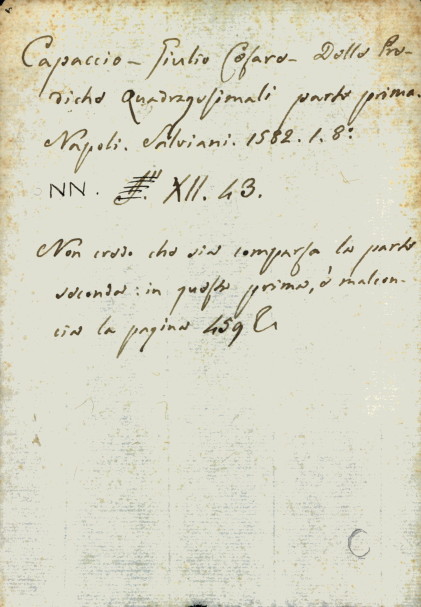 Capaccio - Giulio Cesare - Delle Pre-
diche Quadragesimali parte prima.
Napoli. Salviani. 1582. 1. 8:
NN. XII. 43.
Non credo che sia comparsa la parte
seconda: in questa prima, è malcon-
cia la pagina 459